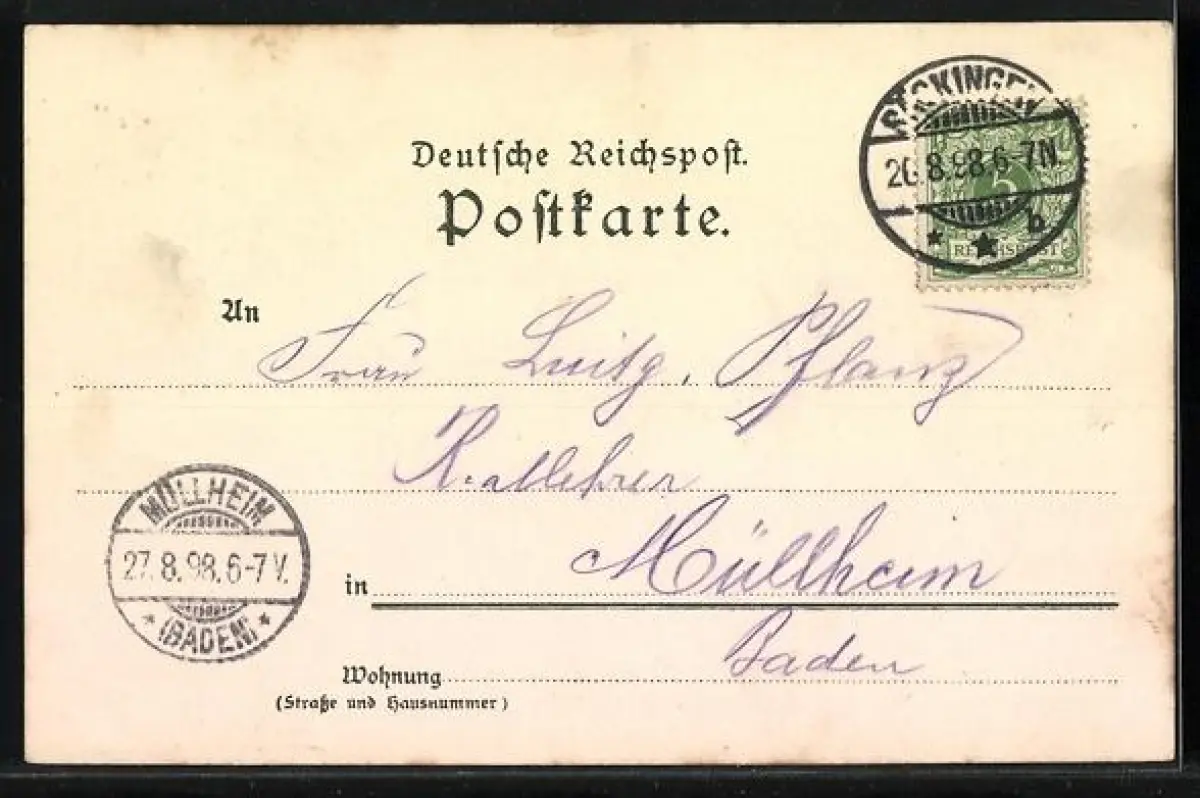 SÄCKINGEN
26.8.98.6-7N.
* ★ b
5
REICHSPOST
Deutsche Reichspost.
Postkarte.
An Frau Luitg. Pflanz
Reallehrer
MÜLLHEIM
27.8.98.6-7V.
* (BADEN) *
in Müllheim
Baden
Wohnung
(Straße und Hausnummer)